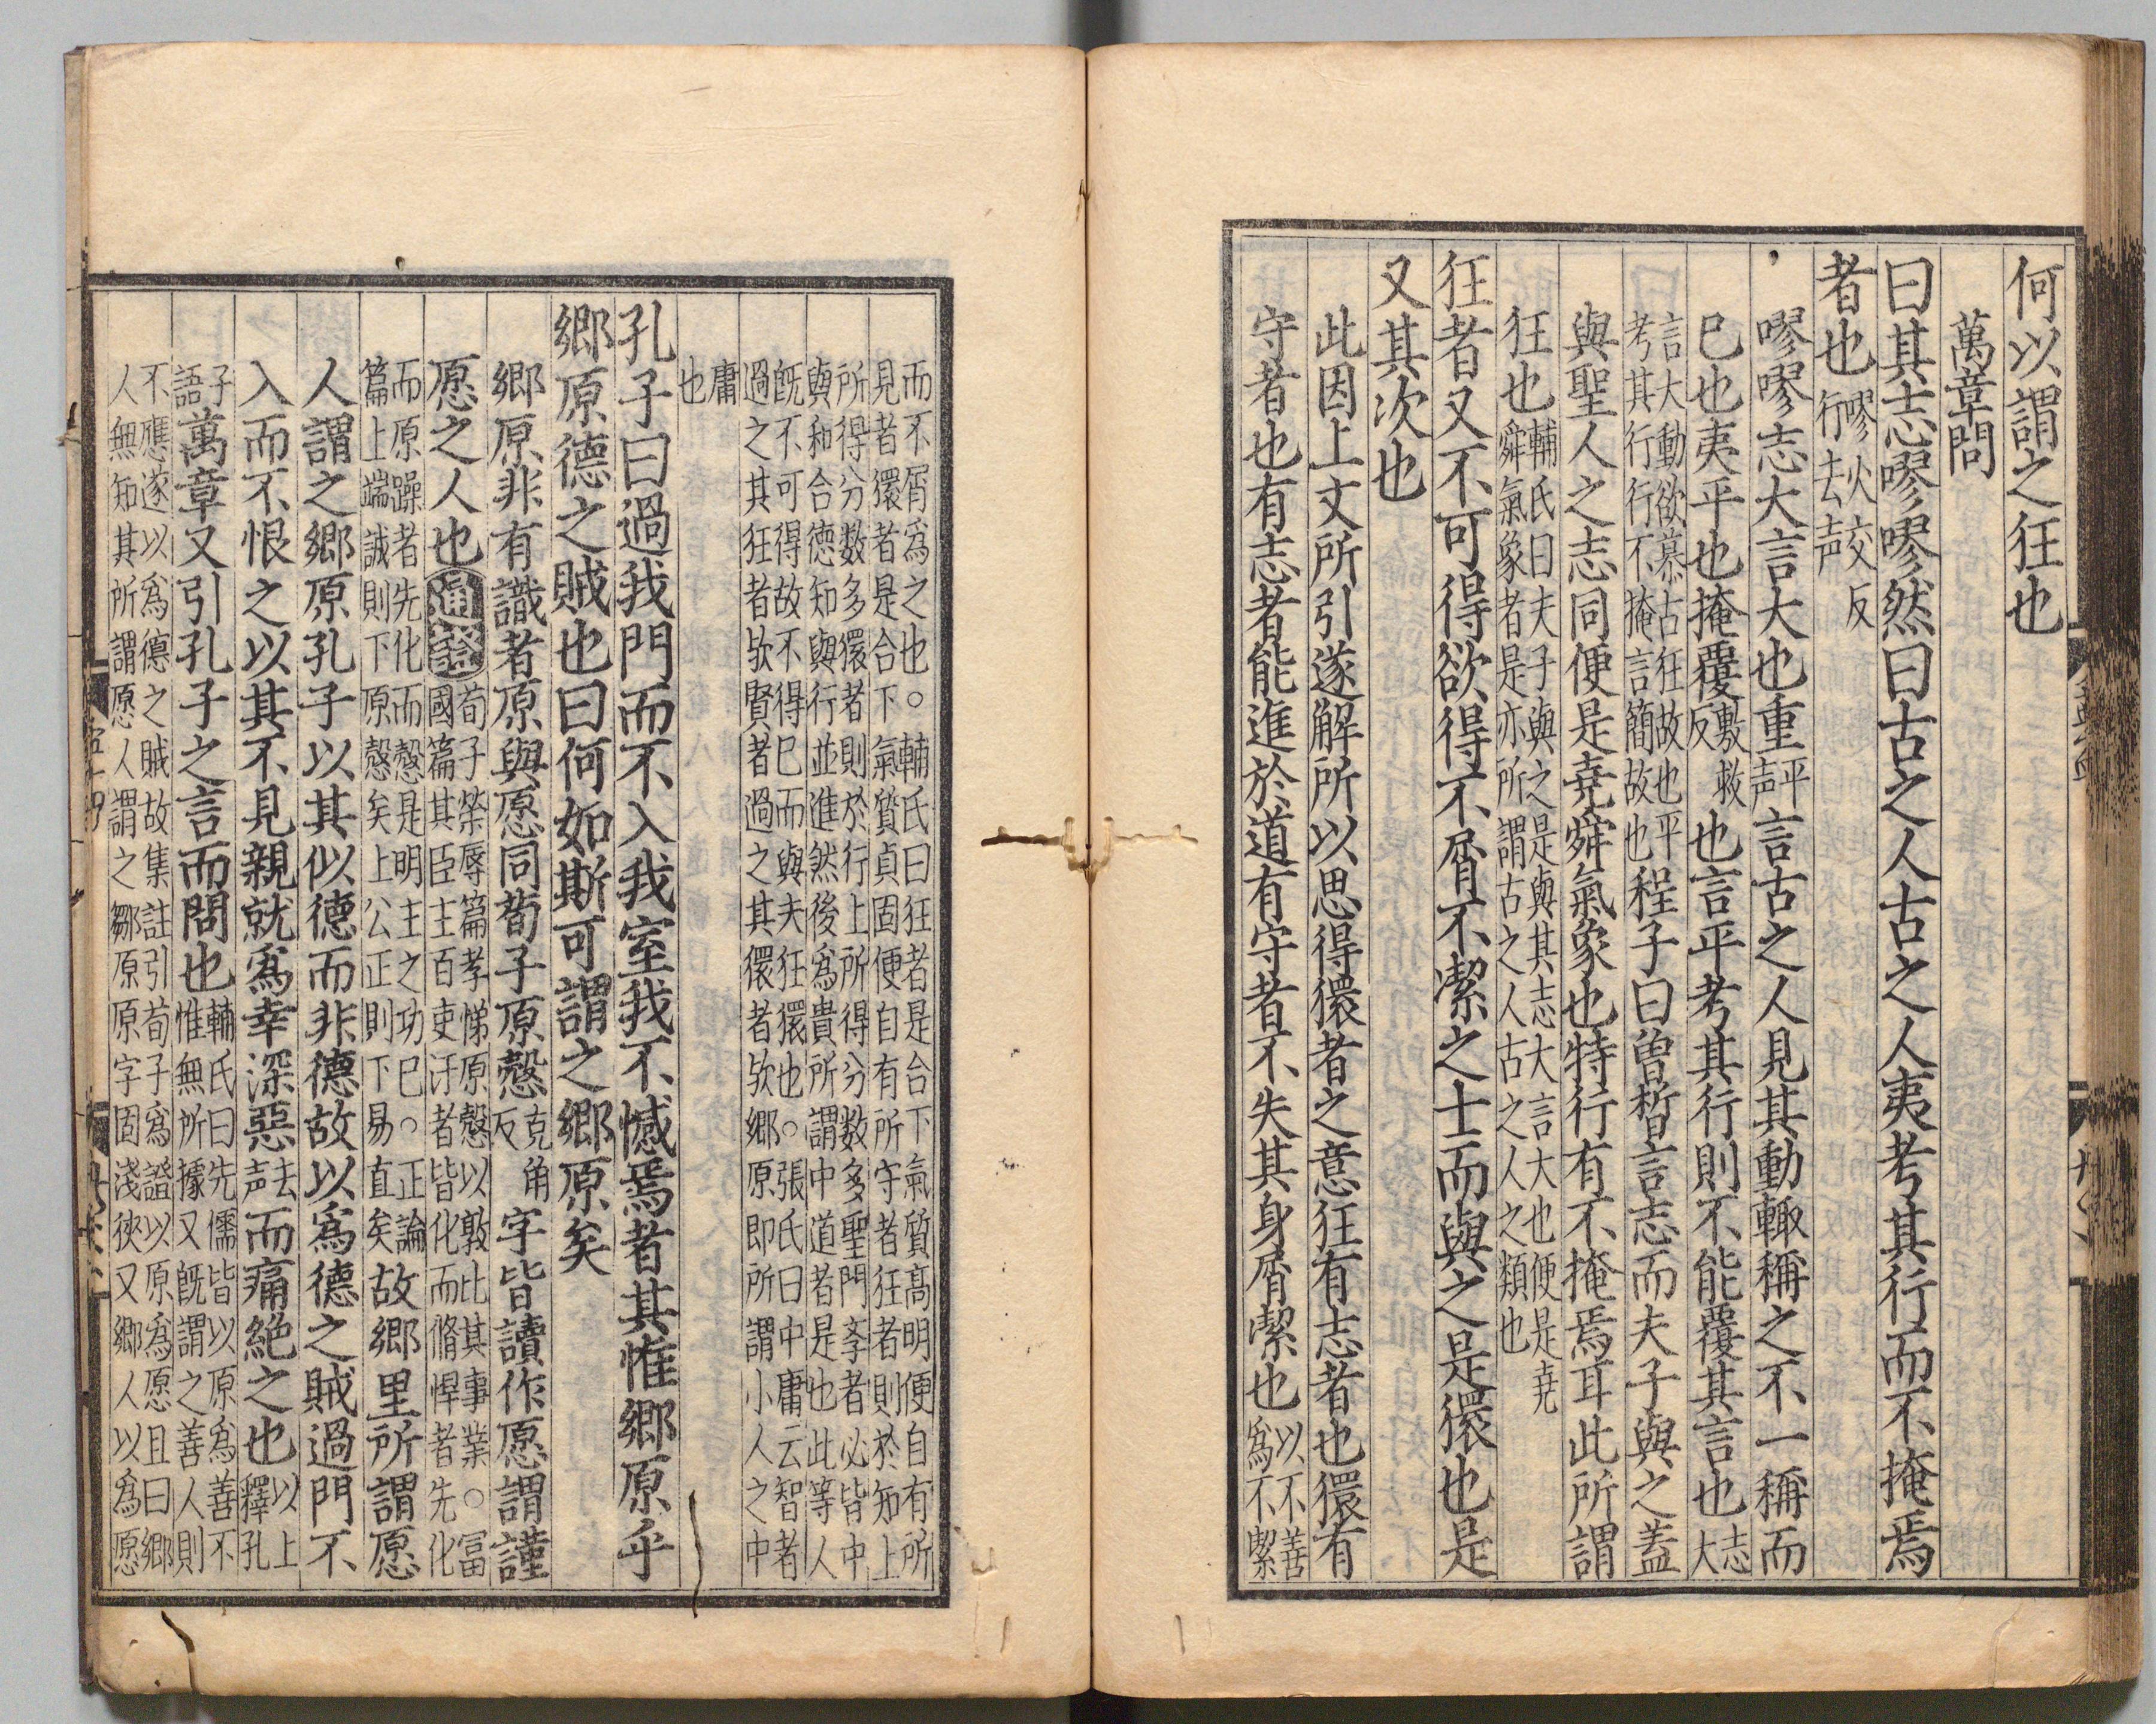 何以謂之狂也
萬章問
曰其志嘐嘐然曰古之人古之人夷考其行而不掩焉
者也嘐火交反行去声
嘐嘐志大言大也重平声言古之人見其動輙稱之不一稱而
已也夷平也掩覆敷救反也言平考其行則不能覆其言也志大
言大動欲慕古狂故也平考其行行不掩言簡故也程子曰曾晳言志而夫子與之蓋
與聖人之志同便是堯舜氣象也特行有不掩焉耳此所謂
狂也輔氏曰夫子與之是與其志大言大也便是堯舜氣象者是亦所謂古之人古之人之類也
狂者又不可得欲得不屑不潔之士而與之是獧也是
又其次也
此因上文所引遂解所以思得獧者之意狂有志者也獧有
守者也有志者能進於道有守者不失其身屑潔也以不善爲不潔
而不屑爲之也○輔氏曰狂者是合下氣質高明便自有所
見者獧者是合下氣質貞固便自有所守者狂者則於知上
所得分数多獧者則於行上所得分数多聖門学者必皆中
與和合德知與行並進然後爲貴所謂中道者是也此等人
既不可得故不得已而與夫狂獧也○張氏曰中庸云智者
過之其狂者欤賢者過之其獧者欤鄉原即所謂小人之中
庸也
孔子曰過我門而不入我室我不憾焉者其惟鄉原乎
鄉原德之賊也曰何如斯可謂之鄉原矣
鄉原非有識者原與愿同荀子原慤克角反字皆讀作愿謂謹
愿之人也通證荀子榮辱篇孝悌原慤以敦比其事業○冨國篇其臣主百吏汙者皆化而脩悍者先化
而原躁者先化而慤是明主之功已○正論篇上端誠則下原慤矣上公正則下易直矣故鄉里所謂愿
人謂之鄉原孔子以其似德而非德故以爲德之賊過門不
入而不恨之以其不見親就爲幸深惡去声而痛絶之也以上釋孔
子語萬章又引孔子之言而問也輔氏曰先儒皆以原爲善不惟無所據又既謂之善人則
不應遂以爲德之賊故集註引荀子爲證以原爲愿且曰鄉
人無知其所謂愿人謂之鄉原原字固淺狹又鄉人以爲愿